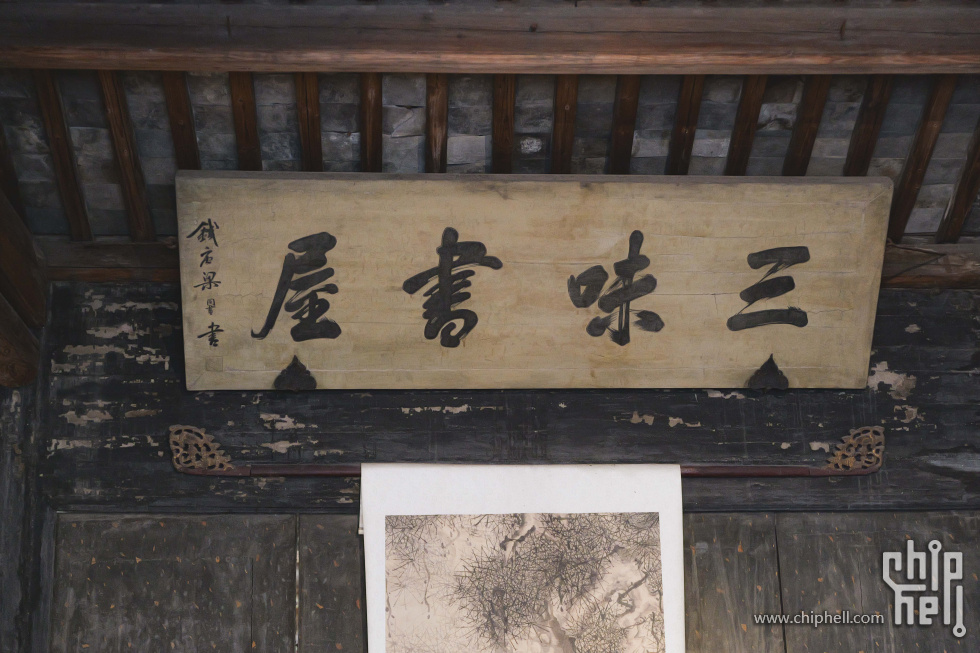 三味書屋
錢店梁同書
www.chiphell.com
chip hell